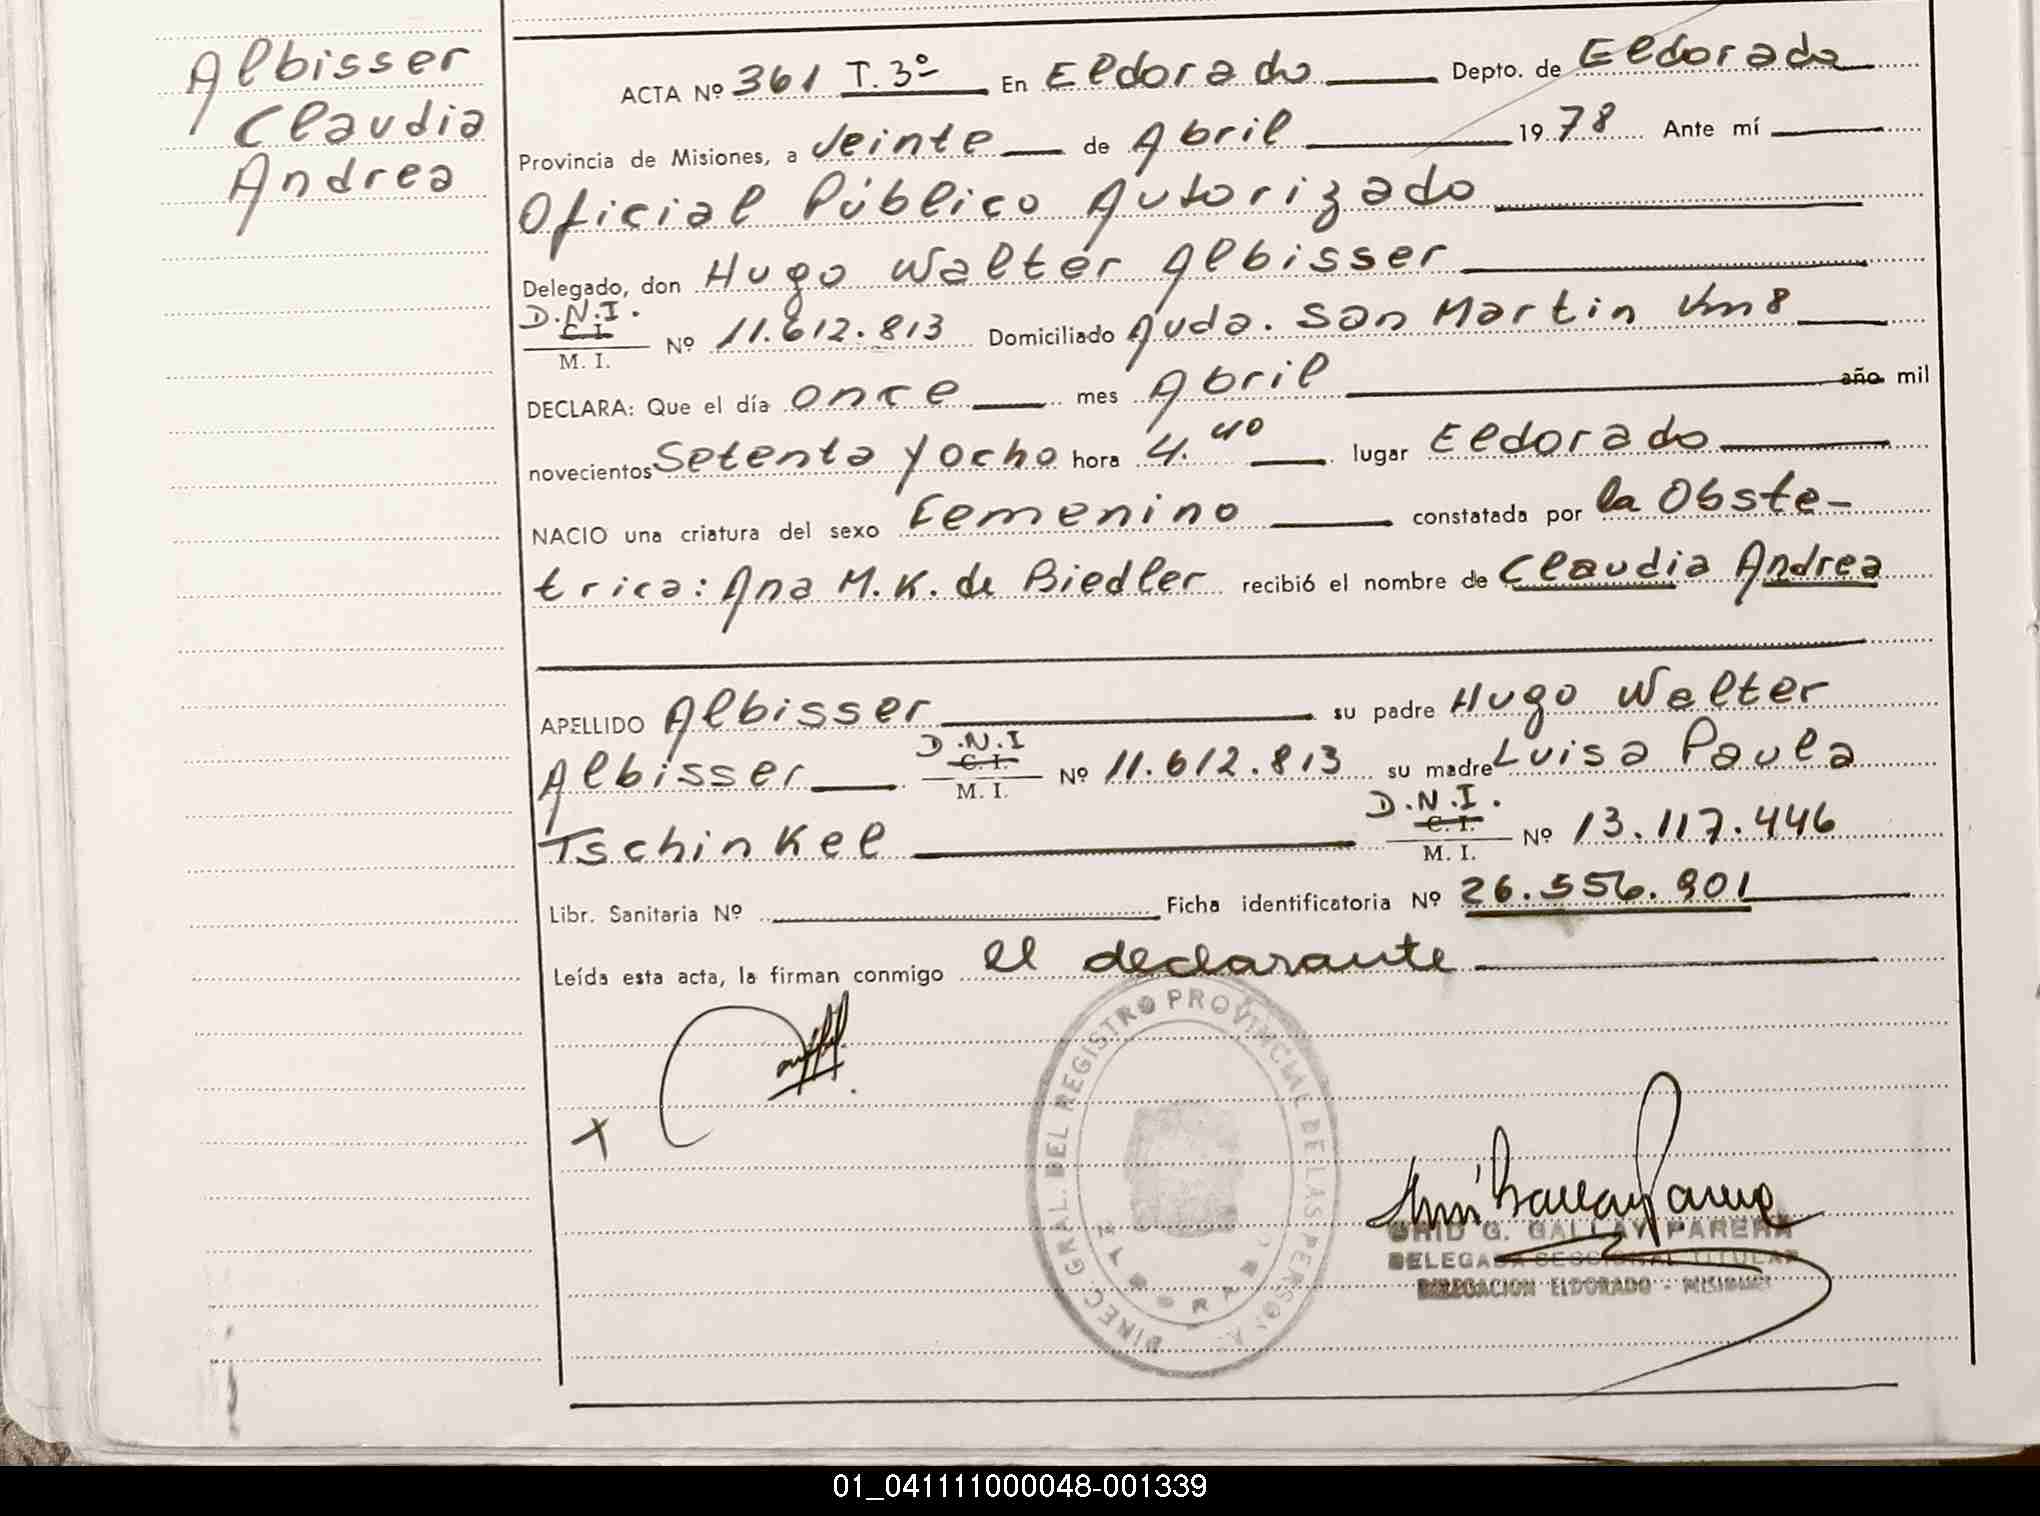 Albisser
Claudia
Andrea
ACTA Nº 361 T. 3º En Eldorado Depto. de Eldorado
Provincia de Misiones, a Veinte de Abril 1978 Ante mí
Oficial Público Autorizado
Delegado, don Hugo Walter Albisser
D.N.I.
C.I.
M. I. Nº 11.612.813 Domiciliado Avda. San Martin Km 8
DECLARA: Que el día once mes Abril año mil
novecientos Setenta y Ocho hora 4.40 lugar Eldorado
NACIO una criatura del sexo Femenino constatada por la Obste-
trica: Ana M. K. de Biedler recibió el nombre de Claudia Andrea
APELLIDO Albisser su padre Hugo Walter
Albisser D.N.I C.I. M. I. Nº 11.612.813 su madre Luisa Paula
Tschinkel D.N.I. C.I. M. I. Nº 13.117.446
Libr. Sanitaria Nº Ficha identificatoria Nº 26.556.901
Leída esta acta, la firman conmigo el declarante
DIREC. GRAL. DEL REGISTRO PROVINCIAL DE LAS PERSONAS
G. GALLAY PARERA
DELEGADA SECCIONAL TITULAR
DELEGACION ELDORADO - MISIONES
01_041111000048-001339